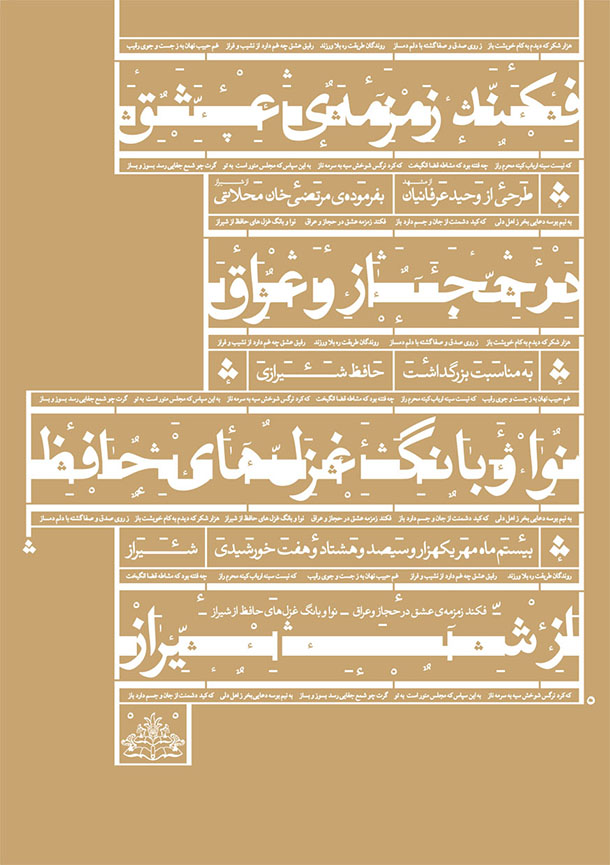 هزار شکر که دیدم به کام خویشت باز   ز روی صدق و صفا گشته با دلم دمساز   روندگان طریقت ره بلا ورزند   رفیق عشق چه غم دارد از نشیب و فراز   غم حبیب نهان به ز جست و جوی رقیب
فکند زمزمه‌ی عشق
که نیست سینه ارباب کینه محرم راز   چه فتنه بود که مشاطه قضا انگیخت   که کرد نرگس شوخش سیه به سرمه ناز   به این سپاس که مجلس منور است به تو   گرت چو شمع جفایی رسد بسوز و بساز
طرحی از وحید عرفانیان از مشهد   بفرموده‌ی مرتضی خان محلاتی از شیراز
به نیم بوسه دعایی بخر ز اهل دلی   که کید دشمنت از جان و جسم دارد باز   فکند زمزمه عشق در حجاز و عراق   نوا و بانگ غزل های حافظ از شیراز
در حجاز و عراق
هزار شکر که دیدم به کام خویشت باز   ز روی صدق و صفا گشته با دلم دمساز   روندگان طریقت ره بلا ورزند   رفیق عشق چه غم دارد از نشیب و فراز
به مناسبت بزرگداشت   حافظ شیرازی
غم حبیب نهان به ز جست و جوی رقیب   که نیست سینه ارباب کینه محرم راز   چه فتنه بود که مشاطه قضا انگیخت   که کرد نرگس شوخش سیه به سرمه ناز   به این سپاس که مجلس منور است به تو   گرت چو شمع جفایی رسد بسوز و بساز
نوا و بانگ غزل‌های حافظ
به نیم بوسه دعایی بخر ز اهل دلی   که کید دشمنت از جان و جسم دارد باز   فکند زمزمه عشق در حجاز و عراق   نوا و بانگ غزل های حافظ از شیراز   هزار شکر که دیدم به کام خویشت باز   ز روی صدق و صفا گشته با دلم دمساز
بیستم ماه مهر یکهزار و سیصد و هشتاد و هفت خورشیدی   شیراز
روندگان طریقت ره بلا ورزند   رفیق عشق چه غم دارد از نشیب و فراز   غم حبیب نهان به ز جست و جوی رقیب   که نیست سینه ارباب کینه محرم راز   چه فتنه بود که مشاطه قضا انگیخت
فکند زمزمه‌ی عشق در حجاز و عراق _ نوا و بانگ غزل‌های حافظ از شیراز
از شیراز
که کرد نرگس شوخش سیه به سرمه ناز   به این سپاس که مجلس منور است به تو   گرت چو شمع جفایی رسد بسوز و بساز   به نیم بوسه دعایی بخر ز اهل دلی   که کید دشمنت از جان و جسم دارد باز